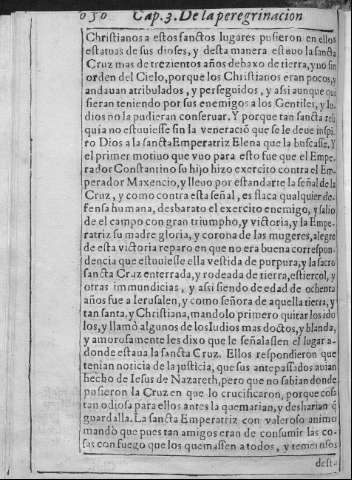 050 Cap. 3. De la peregrinacion
Christianos a estos sanctos lugares pusieron en ellos
estatuas de sus dioses, y desta manera estuuo la sancta
Cruz mas de trezientos años debaxo de tierra, y no sin
orden del Cielo, porque los Christianos eran pocos, y
andauan atribulados, y perseguidos, y assi aunque qui
sieran teniendo por sus enemigos a los Gentiles, y Iu
dios no la pudieran conseruar. Y porque tan sancta reli
quia no estuuiesse sin la veneraciõ que se le deue inspi
ro Dios a la sancta Emperatriz Elena que la buscasse. Y
el primer motiuo que vuo para esto fue que el Empe
rador Constantino su hijo hizo exercito contra el Em-
perador Maxencio, y lleuo por estandarte la señal de la
Cruz, y como contra esta señal, es flaca qualquier de-
fensa humana, desbarato el exercito enemigo, y salio
de el campo con gran triumpho, y victoria, y la Empe-
ratriz su madre gloria, y corona de las mugeres, alegre
de esta victoria reparo en que no era buena correspon-
dencia que estuuiesse ella vestida de purpura, y la sacro
sancta Cruz enterrada, y rodeada de tierra, estiercol, y
otras immundicias, y assi siendo de edad de ochenta
años fue a Ierusalen, y como señora de aquella tierra, y
tan santa, y Christiana, mando lo primero quitar los ido
los, y llamò algunos de los Iudios mas doctos, y blanda,
y amorosamente les dixo que le señalassen el lugar a-
donde estaua la sancta Cruz. Ellos respondieron que
tenian noticia de la justicia, que sus antepassados auian
hecho de Iesus de Nazareth, pero que no sabian donde
pusieron la Cruz en que lo crucificaron, porque cosa
tan odiosa para ellos antes la quemarian, y desharian q̃
guardalla. La sancta Emperatriz con valeroso animo
mandò que pues tan amigos eran de consumir las co-
sas con fuego que los quemassen a todos, y temerosos
desta